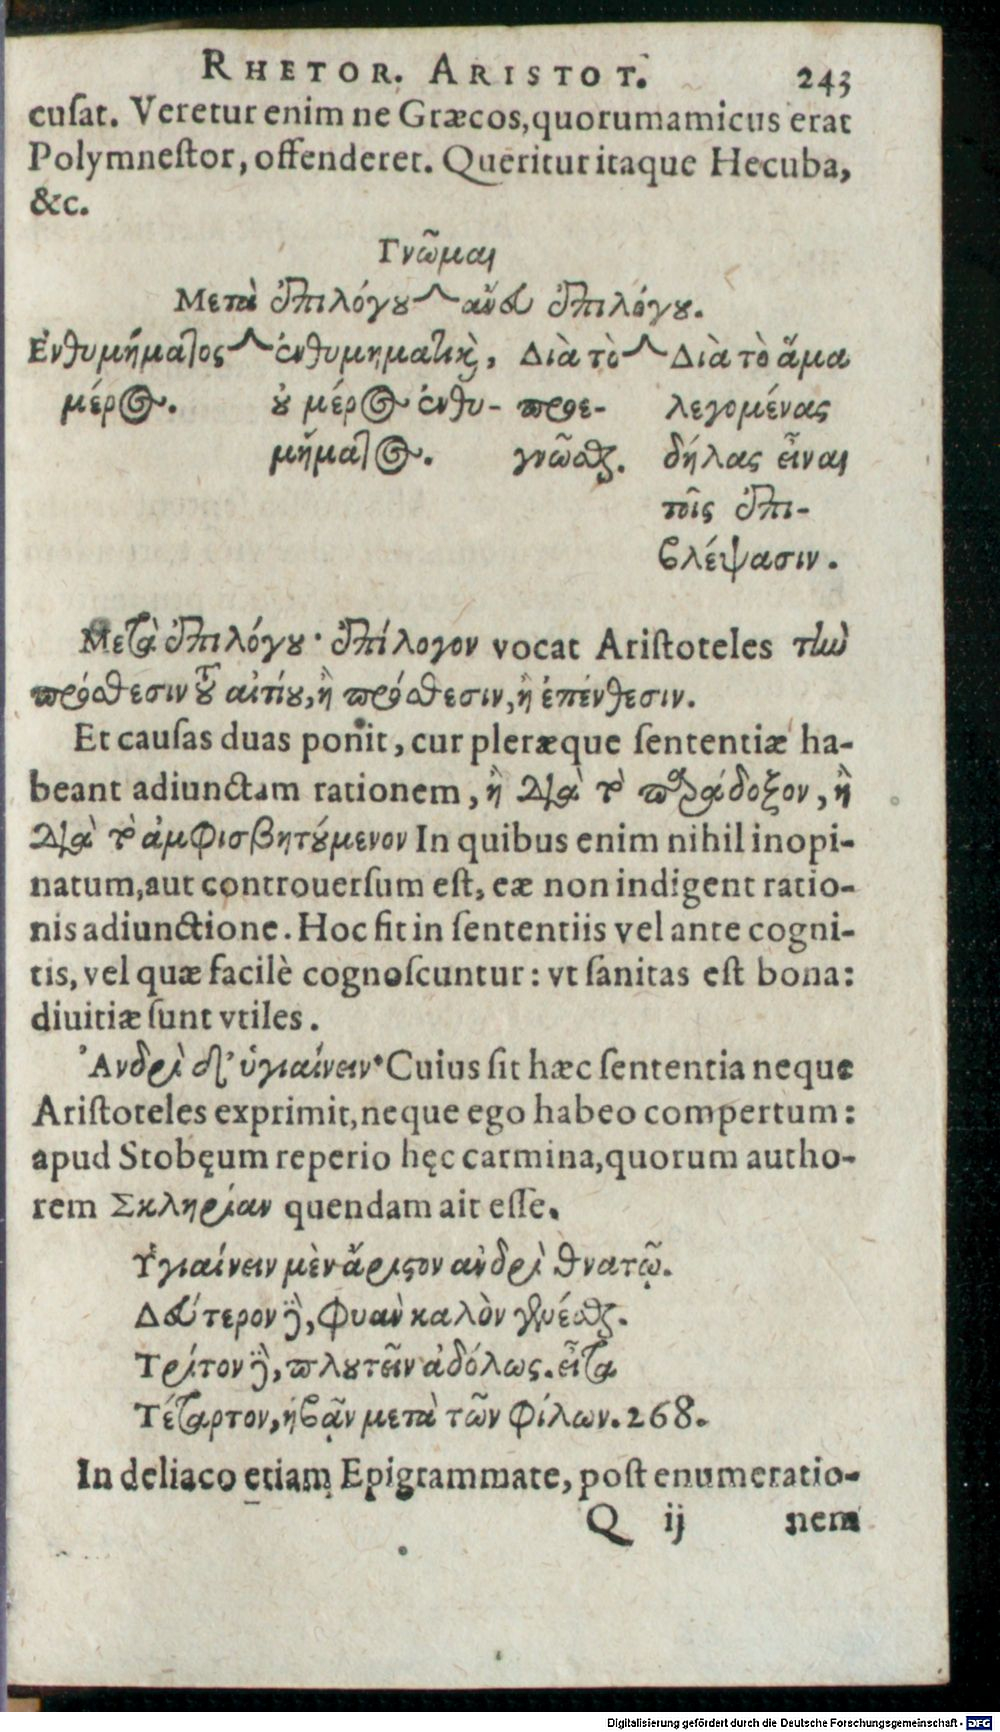 RHETOR. ARISTOT. 243
cusat. Veretur enim ne Græcos, quorum amicus erat
Polymnestor, offenderet. Queritur itaque Hecuba,
&c.
Γνῶμαι
Μετὰ ἐπιλόγου ἄνευ ἐπιλόγου.
Ἐνθυμήματος ἐνθυμηματικαὶ, Διὰ τὸ Διὰ τὸ ἅμα
μέρος. οὐ μέρος ἐνθυ- προε- λεγομένας
μήματος. γνῶσθαι. δήλας εἶναι
τοῖς ἐπι-
βλέψασιν.
Μετὰ ἐπιλόγου· ἐπίλογον vocat Aristoteles τὴν
πρόσθεσιν τοῦ αἰτίου, ἢ πρόσθεσιν, ἢ ἐπένθεσιν.
Et causas duas ponit, cur pleræque sententiæ ha-
beant adiunctam rationem, ἢ διὰ τὸ παράδοξον, ἢ
διὰ τὸ ἀμφισβητούμενον In quibus enim nihil inopi-
natum, aut controuersum est, eæ non indigent ratio-
nis adiunctione. Hoc fit in sententiis vel ante cogni-
tis, vel quæ facilè cognoscuntur: vt sanitas est bona:
diuitiæ sunt vtiles.
Ἀνδρὶ δ' ὑγιαίνειν· Cuius sit hæc sententia neque
Aristoteles exprimit, neque ego habeo compertum:
apud Stobęum reperio hęc carmina, quorum autho-
rem Σκληρίαν quendam ait esse.
Ὑγιαίνειν μὲν ἄριστον ἀνδρὶ θνατῷ.
Δεύτερον δὲ, φυὰν καλὸν γενέσθαι.
Τρίτον δὲ, πλουτεῖν ἀδόλως. εἶτα
Τέταρτον, ἡβᾷν μετὰ τῶν φίλων. 268.
In deliaco etiam Epigrammate, post enumeratio-
Q ij nem
Digitalisierung gefördert durch die Deutsche Forschungsgemeinschaft - DFG